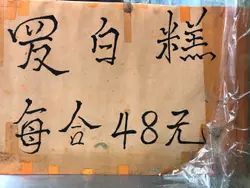 罗白糕
每合48元